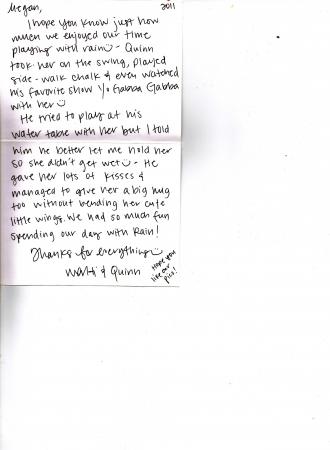 Megan,
2011
I hope you know just how
much we enjoyed our time
playing with rain :) - Quinn
took her on the swing, played
side-walk chalk & even watched
his favorite show Yo Gabba Gabba
with her :)
He tried to play at his
water table with her but I told
him he better let me hold her
so she didn't get wet :) - He
gave her lots of kisses &
managed to give her a big hug
too without bending her cute
little wings. We had so much fun
spending our day with Rain!
Thanks for everything :)
& Quinn
Hope you
like our
pics!